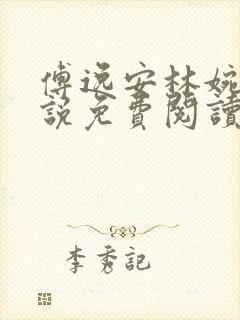 傅逸安林婉
說免費閱讀
李秀記